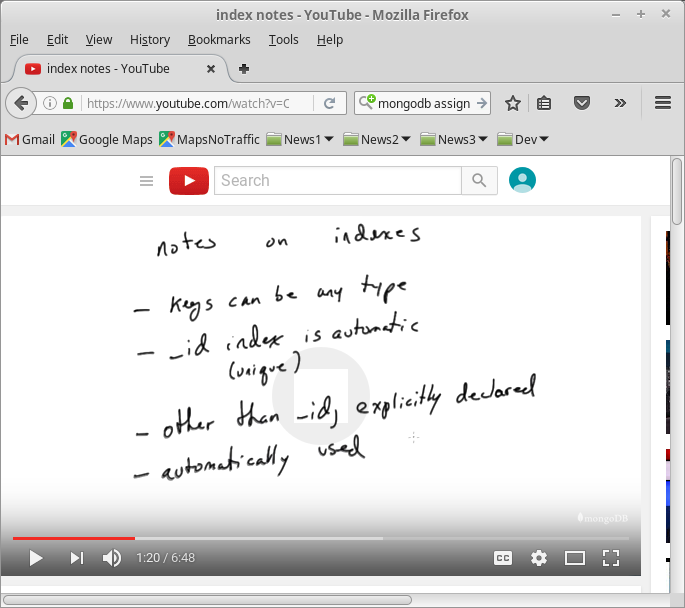 index notes - YouTube - Mozilla Firefox
File Edit View History Bookmarks Tools Help
index notes - YouTube
https://www.youtube.com/watch?v=C
mongodb assign
Gmail Google Maps MapsNoTraffic News1 News2 News3 Dev
Search
notes on indexes
- keys can be any type
- _id index is automatic
(unique)
- other than _id, explicitly declared
- automatically used
mongoDB
1:20 / 6:48
CC